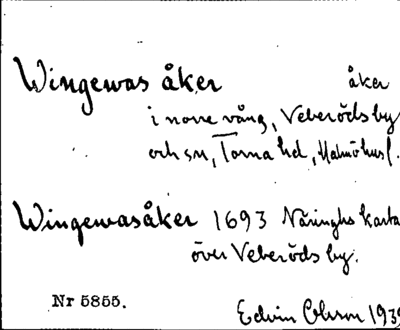 Wingewas åker åker
i norre vång, Veberöds by
och sn, Torna hd, Malmöhus l.
Wingewasåker 1693 Näringhs karta
över Veberöds by.
Nr 5855.
Edvin Ohlson 1939